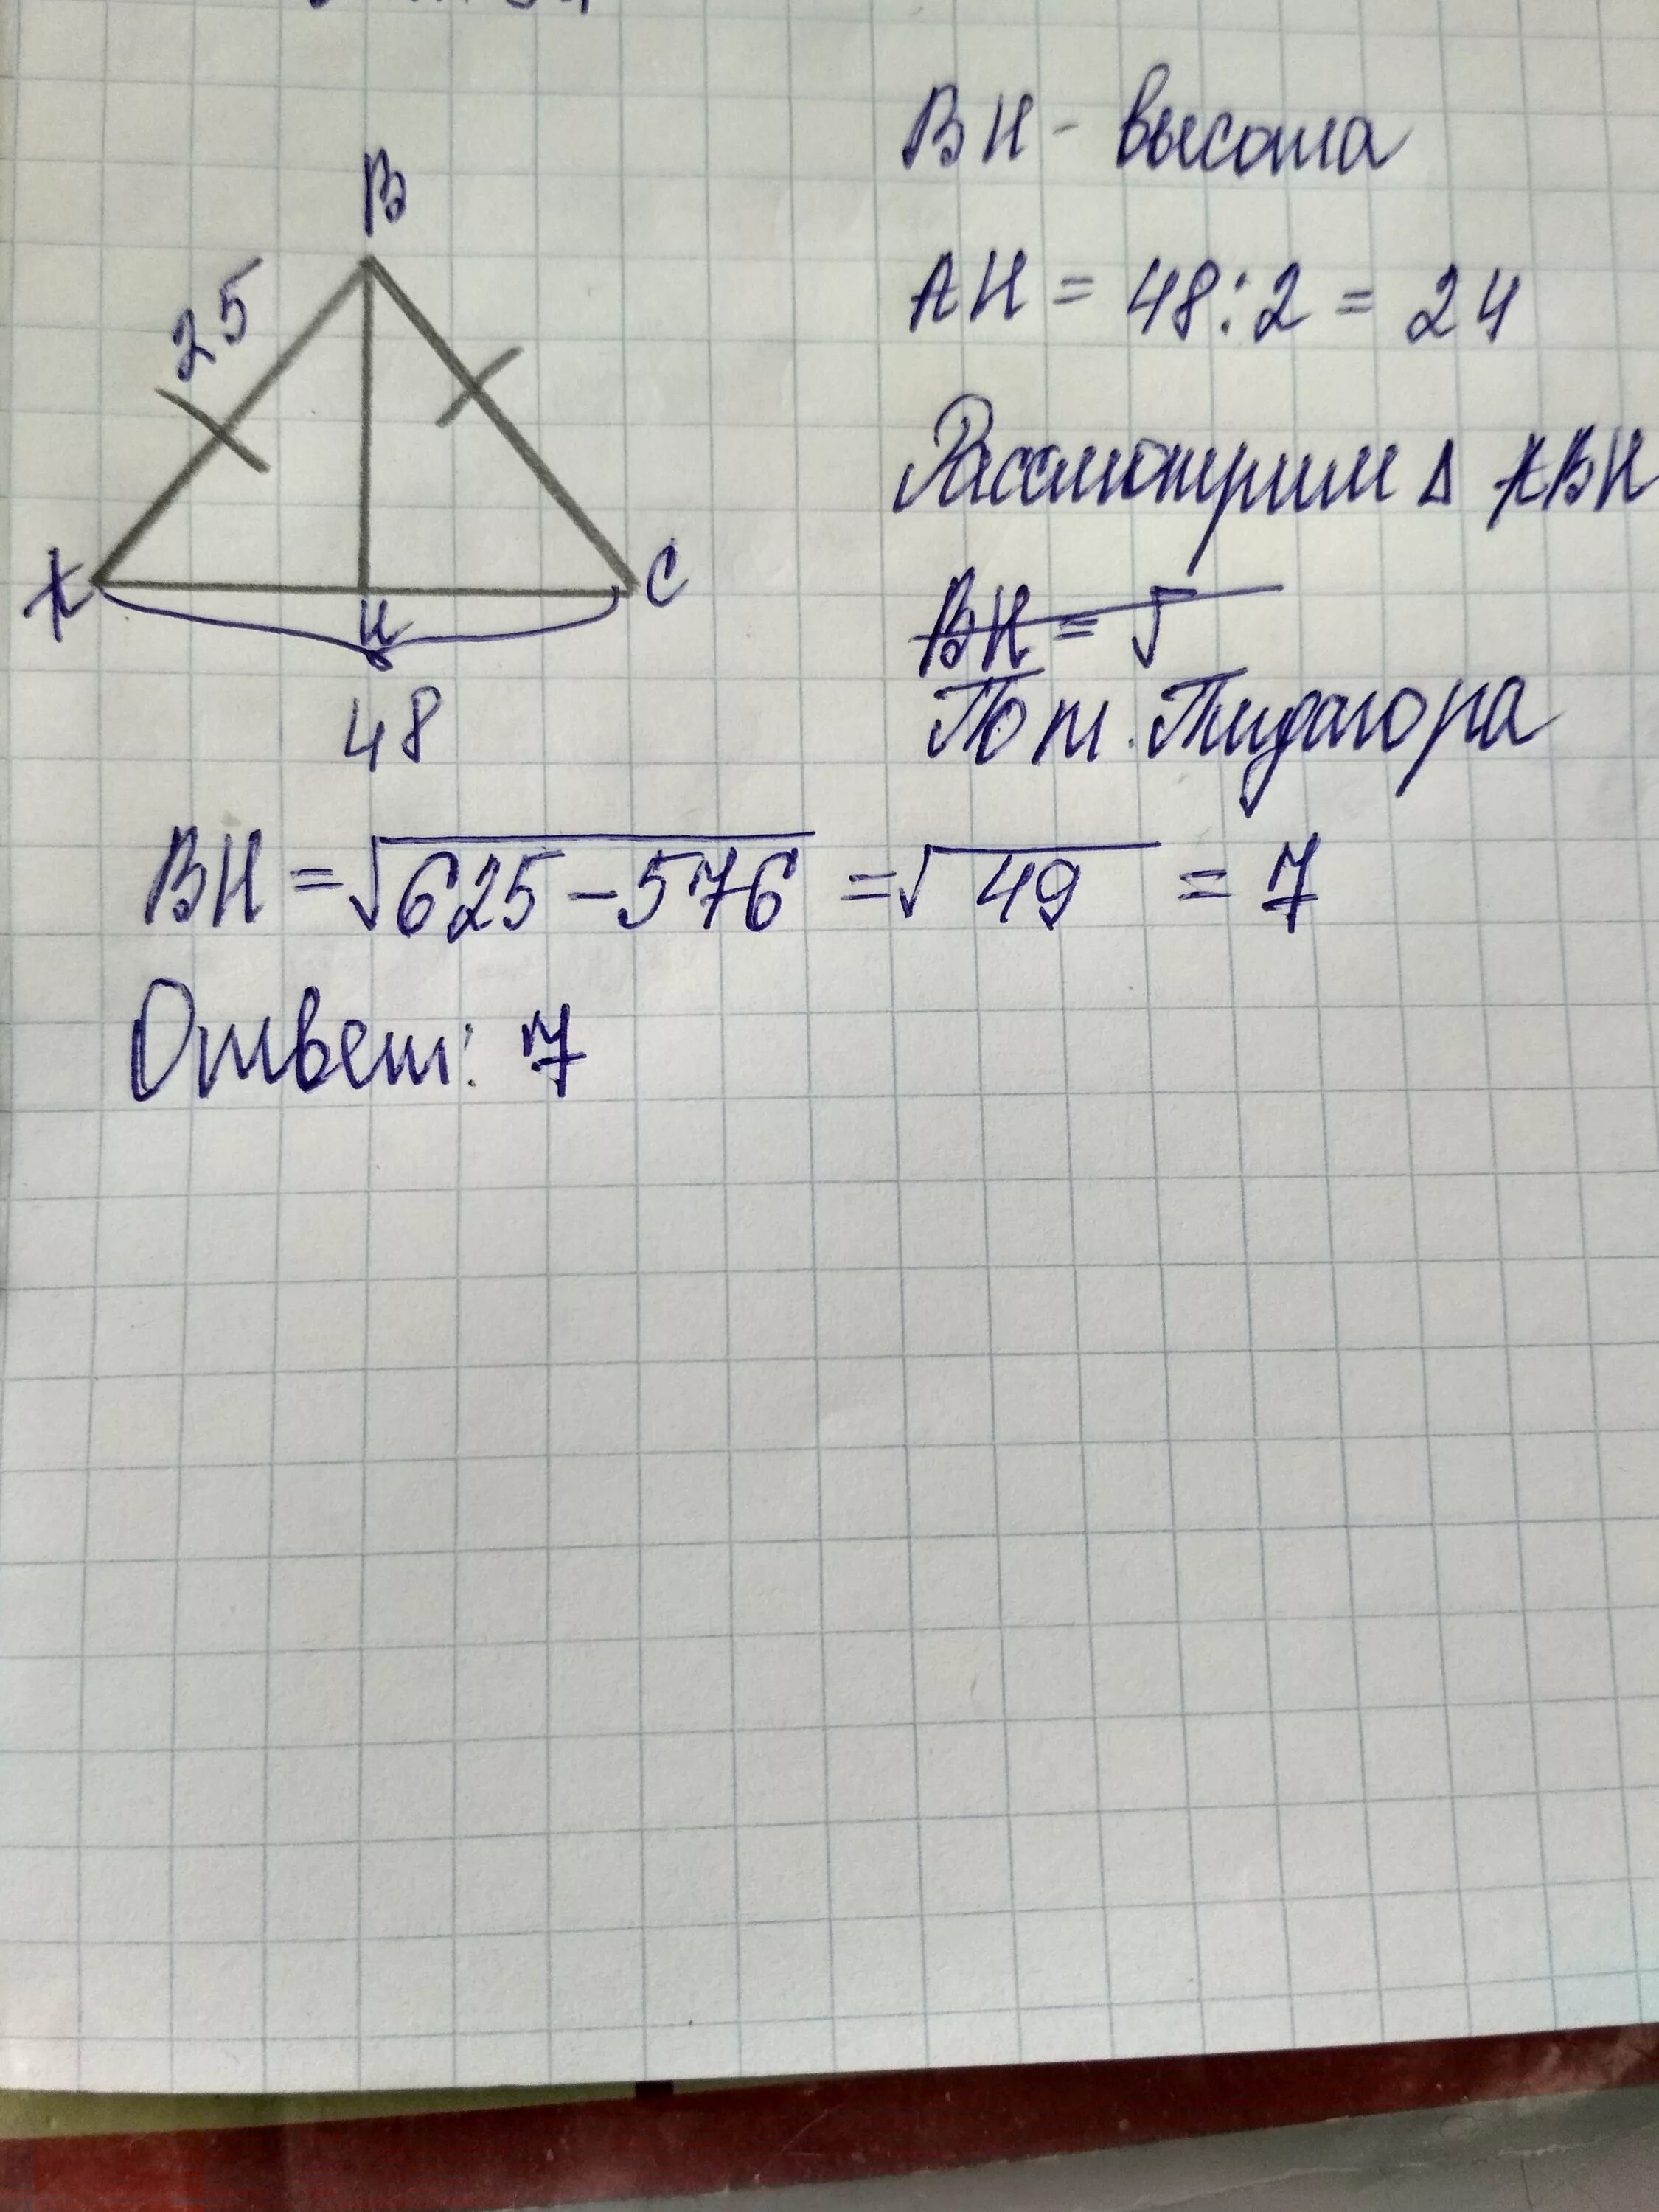 B
25
A
H
C
48
BH - высота
AH = 48:2 = 24
Рассмотрим Δ ABH
BH = √
По т. Пифагора
BH = √625-576 = √49 = 7
Ответ: 7